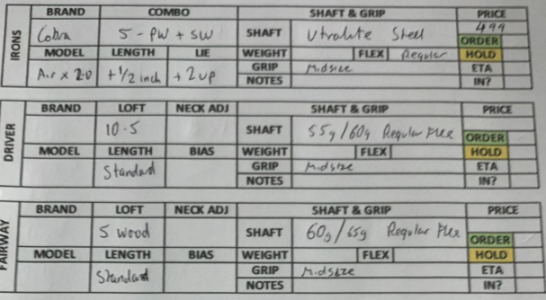 IRONS
BRAND COMBO SHAFT & GRIP PRICE
Cobra 5 - PW + SW SHAFT Utralite Steel 499
ORDER
MODEL LENGTH LIE WEIGHT FLEX Regular HOLD
Air x 2.0 + 1/2 inch + 2 up GRIP Midsize ETA
NOTES IN?
DRIVER
BRAND LOFT NECK ADJ SHAFT & GRIP PRICE
10.5 SHAFT 55g/60g Regular Flex ORDER
MODEL LENGTH BIAS WEIGHT FLEX HOLD
Standard GRIP Midsize ETA
NOTES IN?
FAIRWAY
BRAND LOFT NECK ADJ SHAFT & GRIP PRICE
5 wood SHAFT 60g/65g Regular Flex ORDER
MODEL LENGTH BIAS WEIGHT FLEX HOLD
Standard GRIP Midsize ETA
NOTES IN?